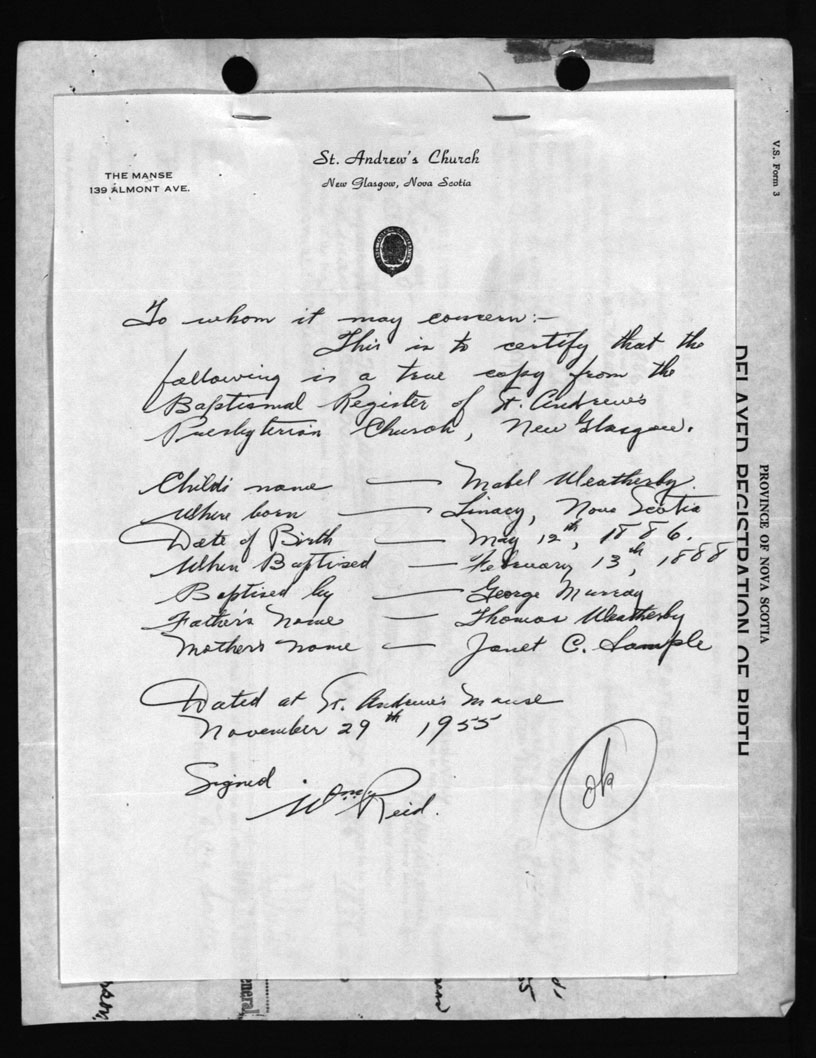 St. Andrew's Church
New Glasgow, Nova Scotia
THE MANSE
139 ALMONT AVE.
V.S. Form 3
To whom it may concern:-
This is to certify that the
following is a true copy from the
Baptismal Register of St. Andrew's
Presbyterian Church, New Glasgow.
Child's name — Mabel Weatherby.
Where born — Linacy, Nova Scotia
Date of Birth — May 12th, 1886.
When Baptised — February 13th, 1888
Baptised by — George Murray
Father's Name — Thomas Weatherby
Mother's name — Janet C. Sample
Dated at St. Andrew's Manse
November 29th, 1955
Signed
Wm Reid.
ok
PROVINCE OF NOVA SCOTIA
DELAYED REGISTRATION OF BIRTH
eneral